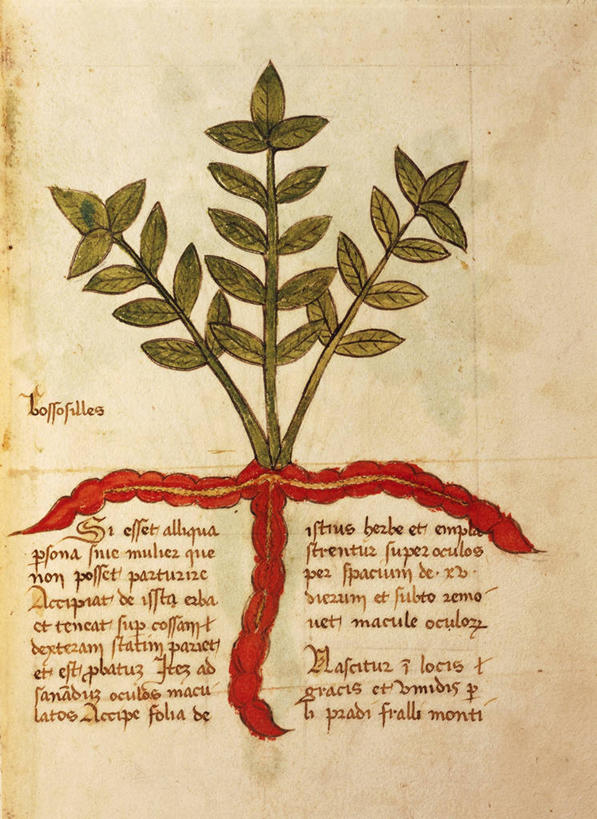 bossofilles
Si esset alliqua
psona siue mulier que
non posset parturire
Accipiat de issta erba
et teneat sup cossam
dexteram statim pariet
et est pbatuz Itez ad
sanaduz oculos macu
latos Accipe folia de
istius herbe et empla
strentur super oculos
per spacium de · xv ·
dierum et subto remo
uet macule oculorꝝ
Nascitur ī locis
gracis et vmidis p
li pradi fralli monti